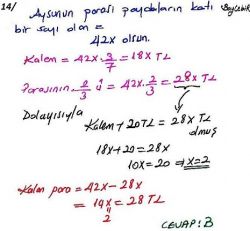 14/ Aysunun parası paydaların katı
bir sayı olan =
42x olsun.
Kalem = 42x.3/7 = 18x TL
Parasının 2/3 ü = 42x.2/3 = 28x TL
Dolayısıyla
Kalem + 20TL = 28x TL
olmuş
18x + 20 = 28x
10x = 20 ⇒ x = 2
Kalan para = 42x - 28x
= 14x = 28 TL
2
CEVAP: B